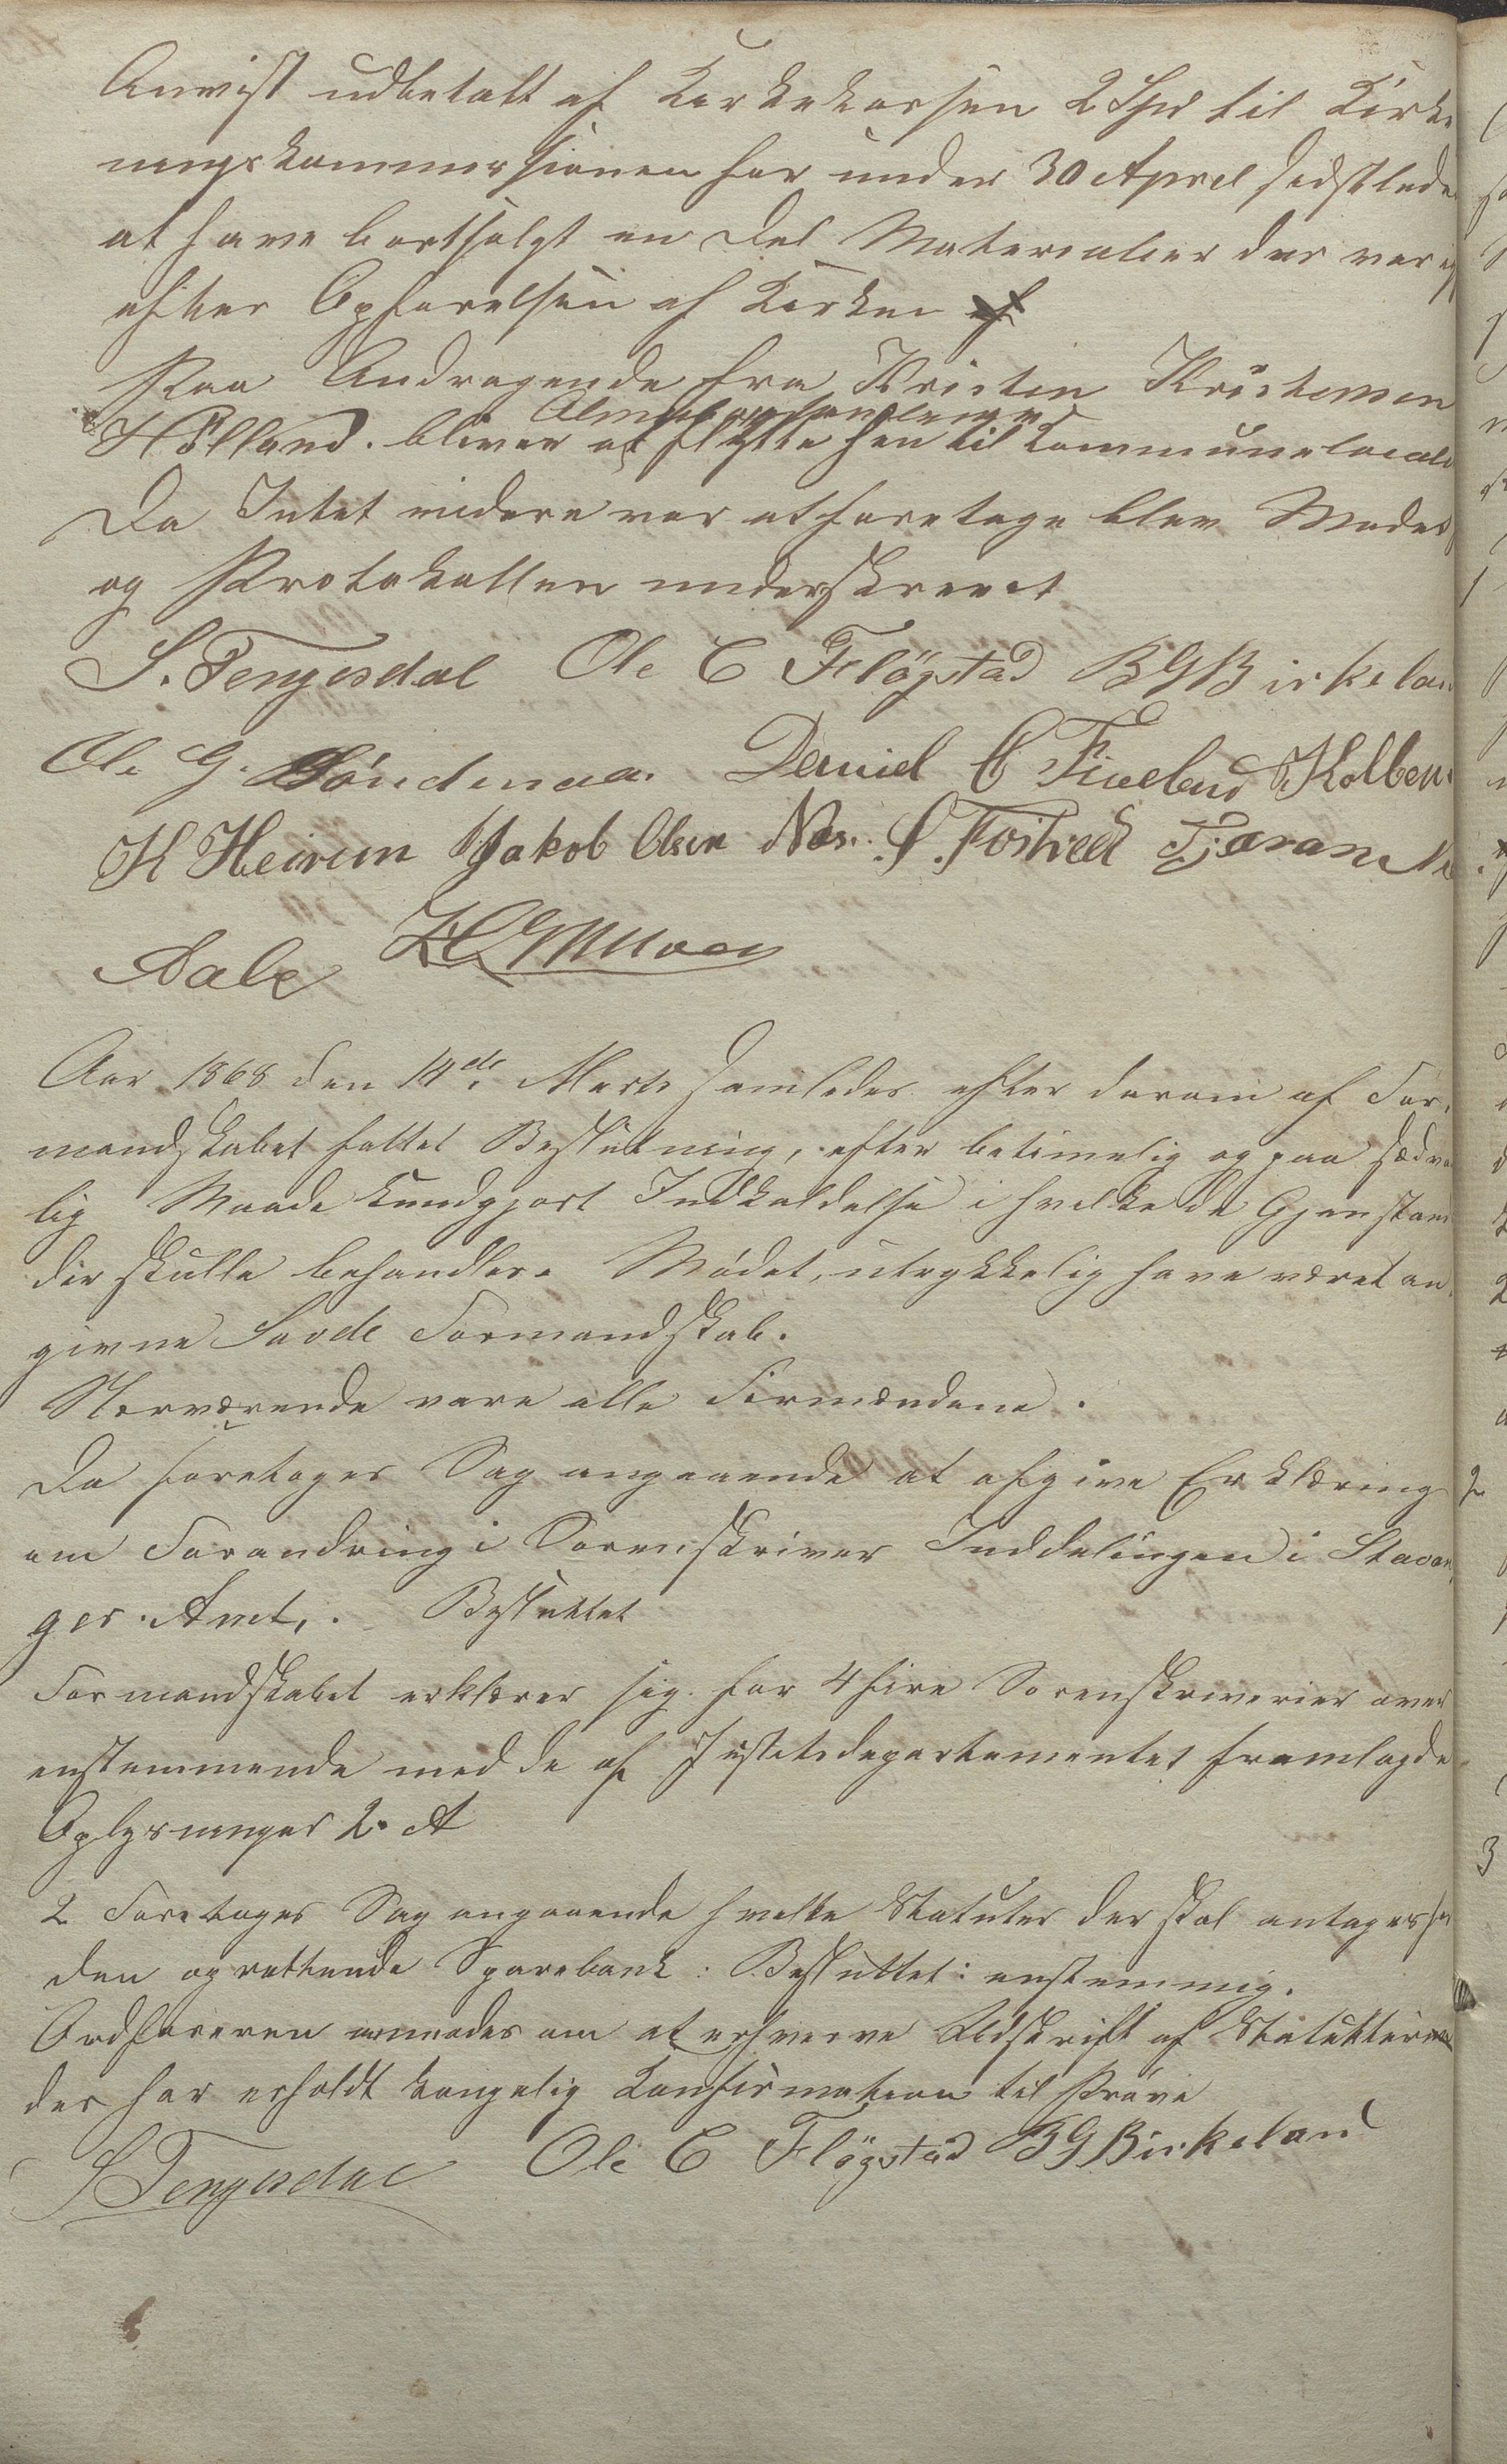 Anvist udbetalt af Kirkekassen 2 Spd til Kirke
ningskommissionen har under 30 April sidstleden
at have bortsolgt en Del Materialier der var
efter Opførelsen af Kirken
Paa Andragende fra Kristen Kristensen
Hölland. bliver at flytte hen til Kommunelocale
Da Intet videre var at foretage blev Mødet
og Protokollen underskrevet
S. Tengesdal Ole C Flögstad B G Birkelan
Ole G. Söndenaa. Daniel C Fiveland Kolben
K Heirem Jakob Olsen Næs. S. Fostveit Gjeran
Aale
Aar 1868 den 14de Marts samledes efter derom af For,
mandskabet fattet Beslutning, efter betimelig og paa sædvan
lig Maade kundgjort Indkaldelse i hvilke de Gjenstan
der skulle behandles i Mødet, utrykkelig have været an,
givne Savde Formandskab.
Nærværende vare alle Formændene.
Da foretoges Sag angaaende at afgive Erklæring
om Forandring i Sorenskriver Inddelingen i Stavan
ger Amt,. Besluttet
Formandskabet erklærer sig for 4 fire Sorenskriverier over
enstemmende med de af Justitsdepartementet fremlagde
Oplysninger 2. A
2 Foretoges Sag angaaende hvilke Statuter der skal antages for
den oprettende Sparebank: Besluttet: enstemmig.
Ordføreren anmodes om at erhverve Udskrift af Statutter
der har erholdt kongelig Konfirmation til Prøve
S Tengesdal Ole C Flögstad B G Birkeland